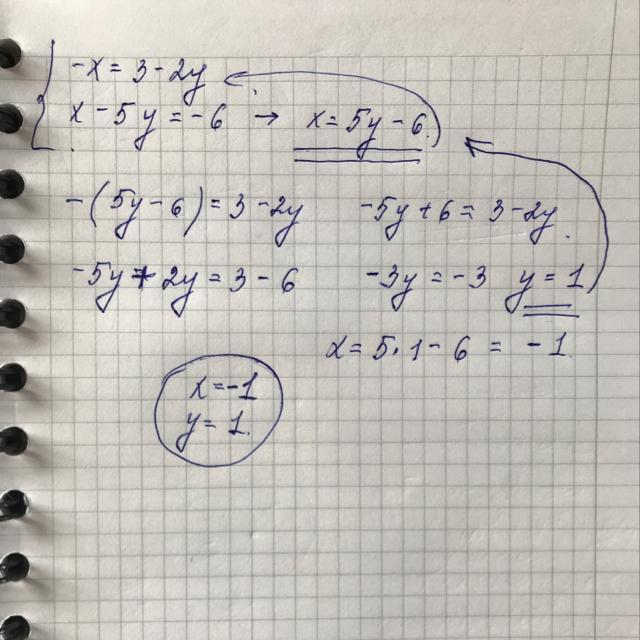 -x = 3 - 2y
x - 5y = -6 → x = 5y - 6
-(5y - 6) = 3 - 2y -5y + 6 = 3 - 2y
-5y + 2y = 3 - 6 -3y = -3 y = 1
x = 5 · 1 - 6 = -1
x = -1
y = 1